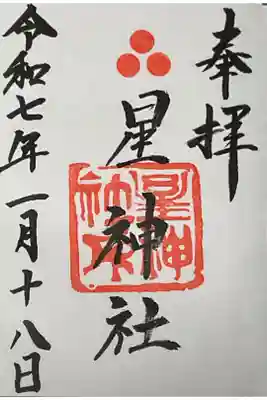 奉拝
星神社
星神社
令和七年一月十八日